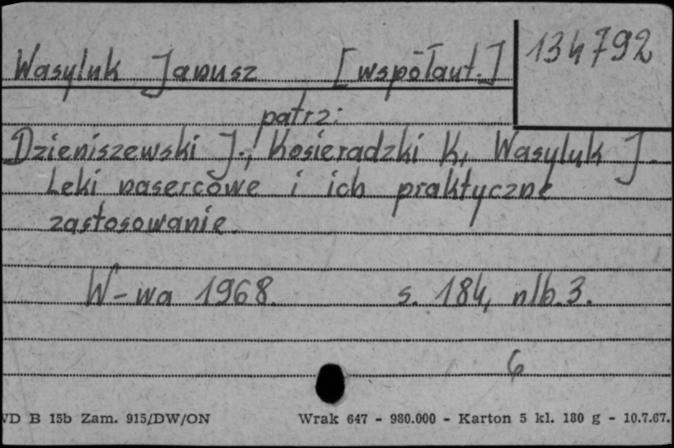 134792
Wasyluk Janusz [współaut.]
patrz:
Dzieniszewski J., Kosieradzki K, Wasyluk J.
Leki nasercowe i ich praktyczne
zastosowanie.
W-wa 1968. s. 184, nlb. 3.
6
VD B 15b Zam. 915/DW/ON Wrak 647 - 980.000 - Karton 5 kl. 180 g - 10.7.67.